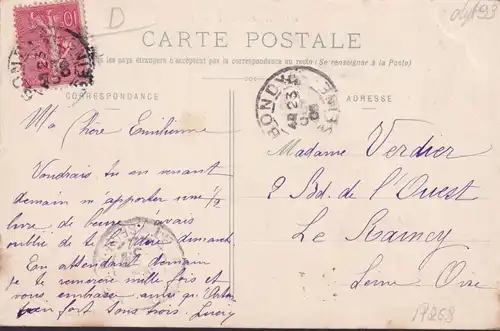 D
CARTE POSTALE
les pays étrangers n'acceptent pas la correspondance au recto (Se renseigner à la Poste)
CORRESPONDANCE
ADRESSE
10
BONDY
23
SEINE
Ma Chère Emilienne
Voudrais tu en venant
demain m'apporter une 1/2
livre de beurre j'avais
oublié de te le dire dimanch.
En attendant demain
je te remercie mille fois et
vous embrasse ainsi qu'
bien fort tous trois
Madame Verdier
2 Bd. de l'Ouest
Le Raincy
Seine Oise
19268